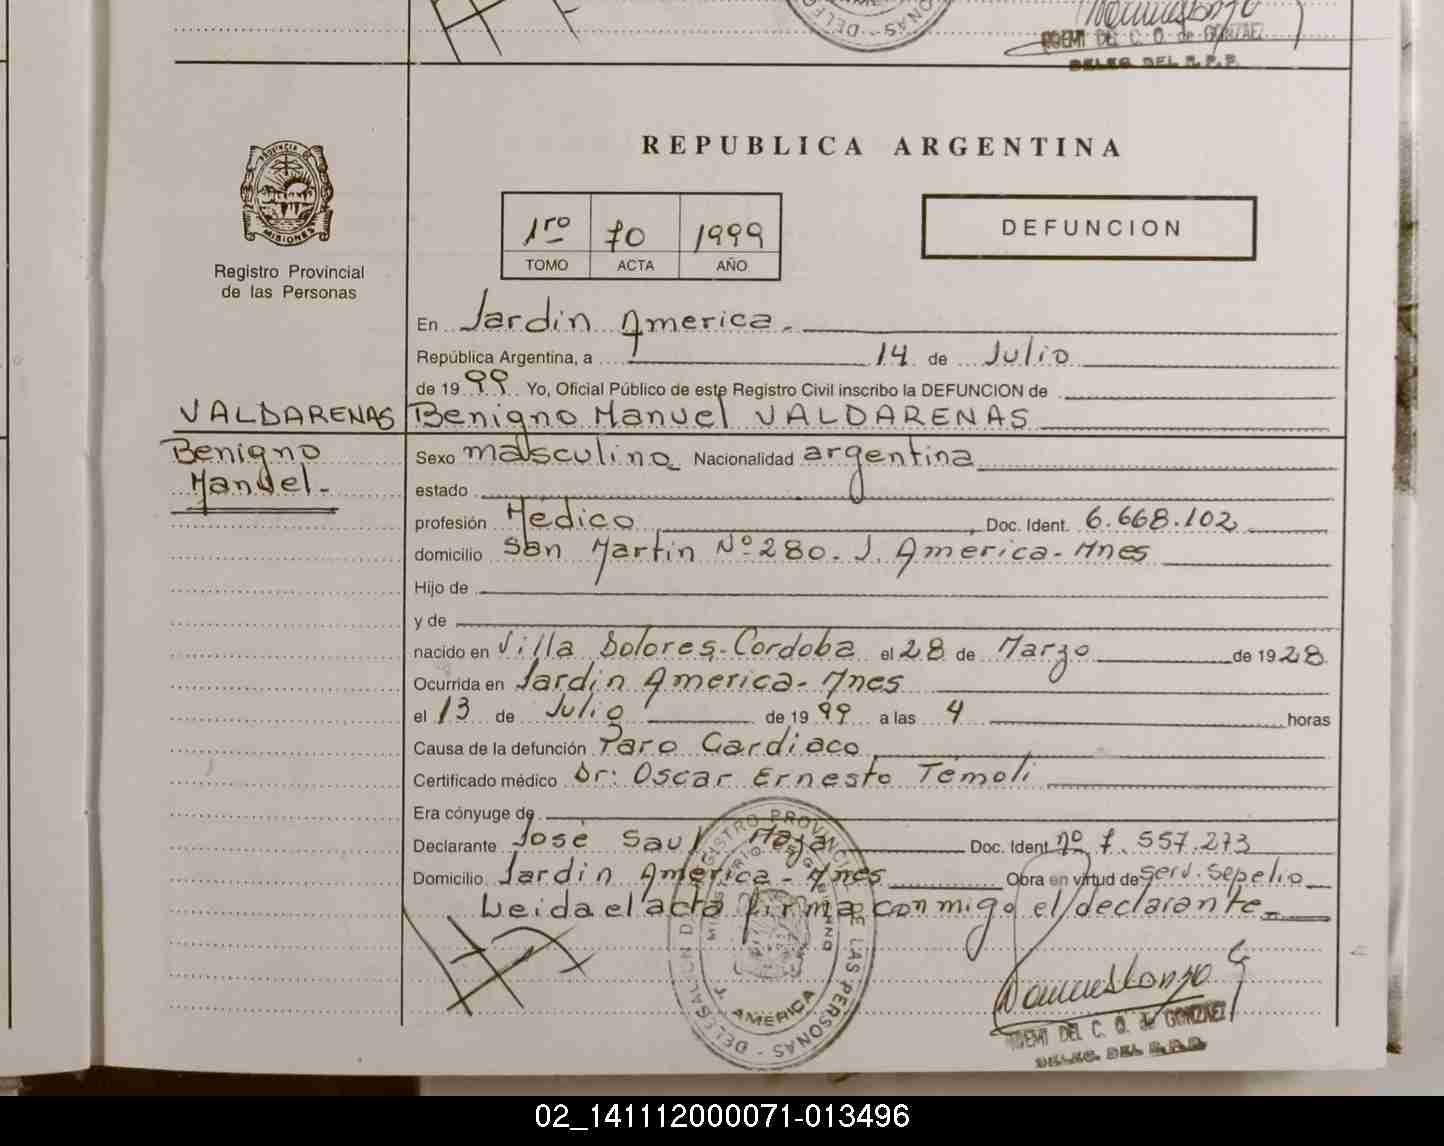 DEL C. O. de GONZALEZ
DELEG. DEL R. P. P.
PROVINCIA DE
MISIONES
Registro Provincial
de las Personas
REPUBLICA ARGENTINA
1ro 70 1999
TOMO ACTA AÑO
DEFUNCION
En Jardin America.
República Argentina, a 14 de Julio
de 1999 Yo, Oficial Público de este Registro Civil inscribo la DEFUNCION de
VALDARENAS Benigno Manuel VALDARENAS
Benigno
Manuel.-
Sexo masculino Nacionalidad argentina
estado
profesión Medico, Doc. Ident. 6.668.102
domicilio San Martin Nº 280. J. America- Mnes
Hijo de
y de
nacido en Villa Dolores-Cordoba el 28 de Marzo de 1928.
Ocurrida en Jardin America- Mnes
el 13 de Julio de 1999 a las 4 horas
Causa de la defunción Paro Cardiaco
Certificado médico Dr: Oscar Ernesto Temoli
Era cónyuge de
Declarante José Saul Maza Doc. Ident nº 7.557.273
Domicilio Jardin America- Mnes Obra en virtud de serv. sepelio
Leida el acta firma conmigo el declarante.
DELEGACION DEL REGISTRO PROVINCIAL DE LAS PERSONAS
MINISTERIO DE GOBIERNO
J. AMERICA
NOEMI DEL C. O. de GONZALEZ
DELEG. DEL R. P. P.
02_141112000071-013496